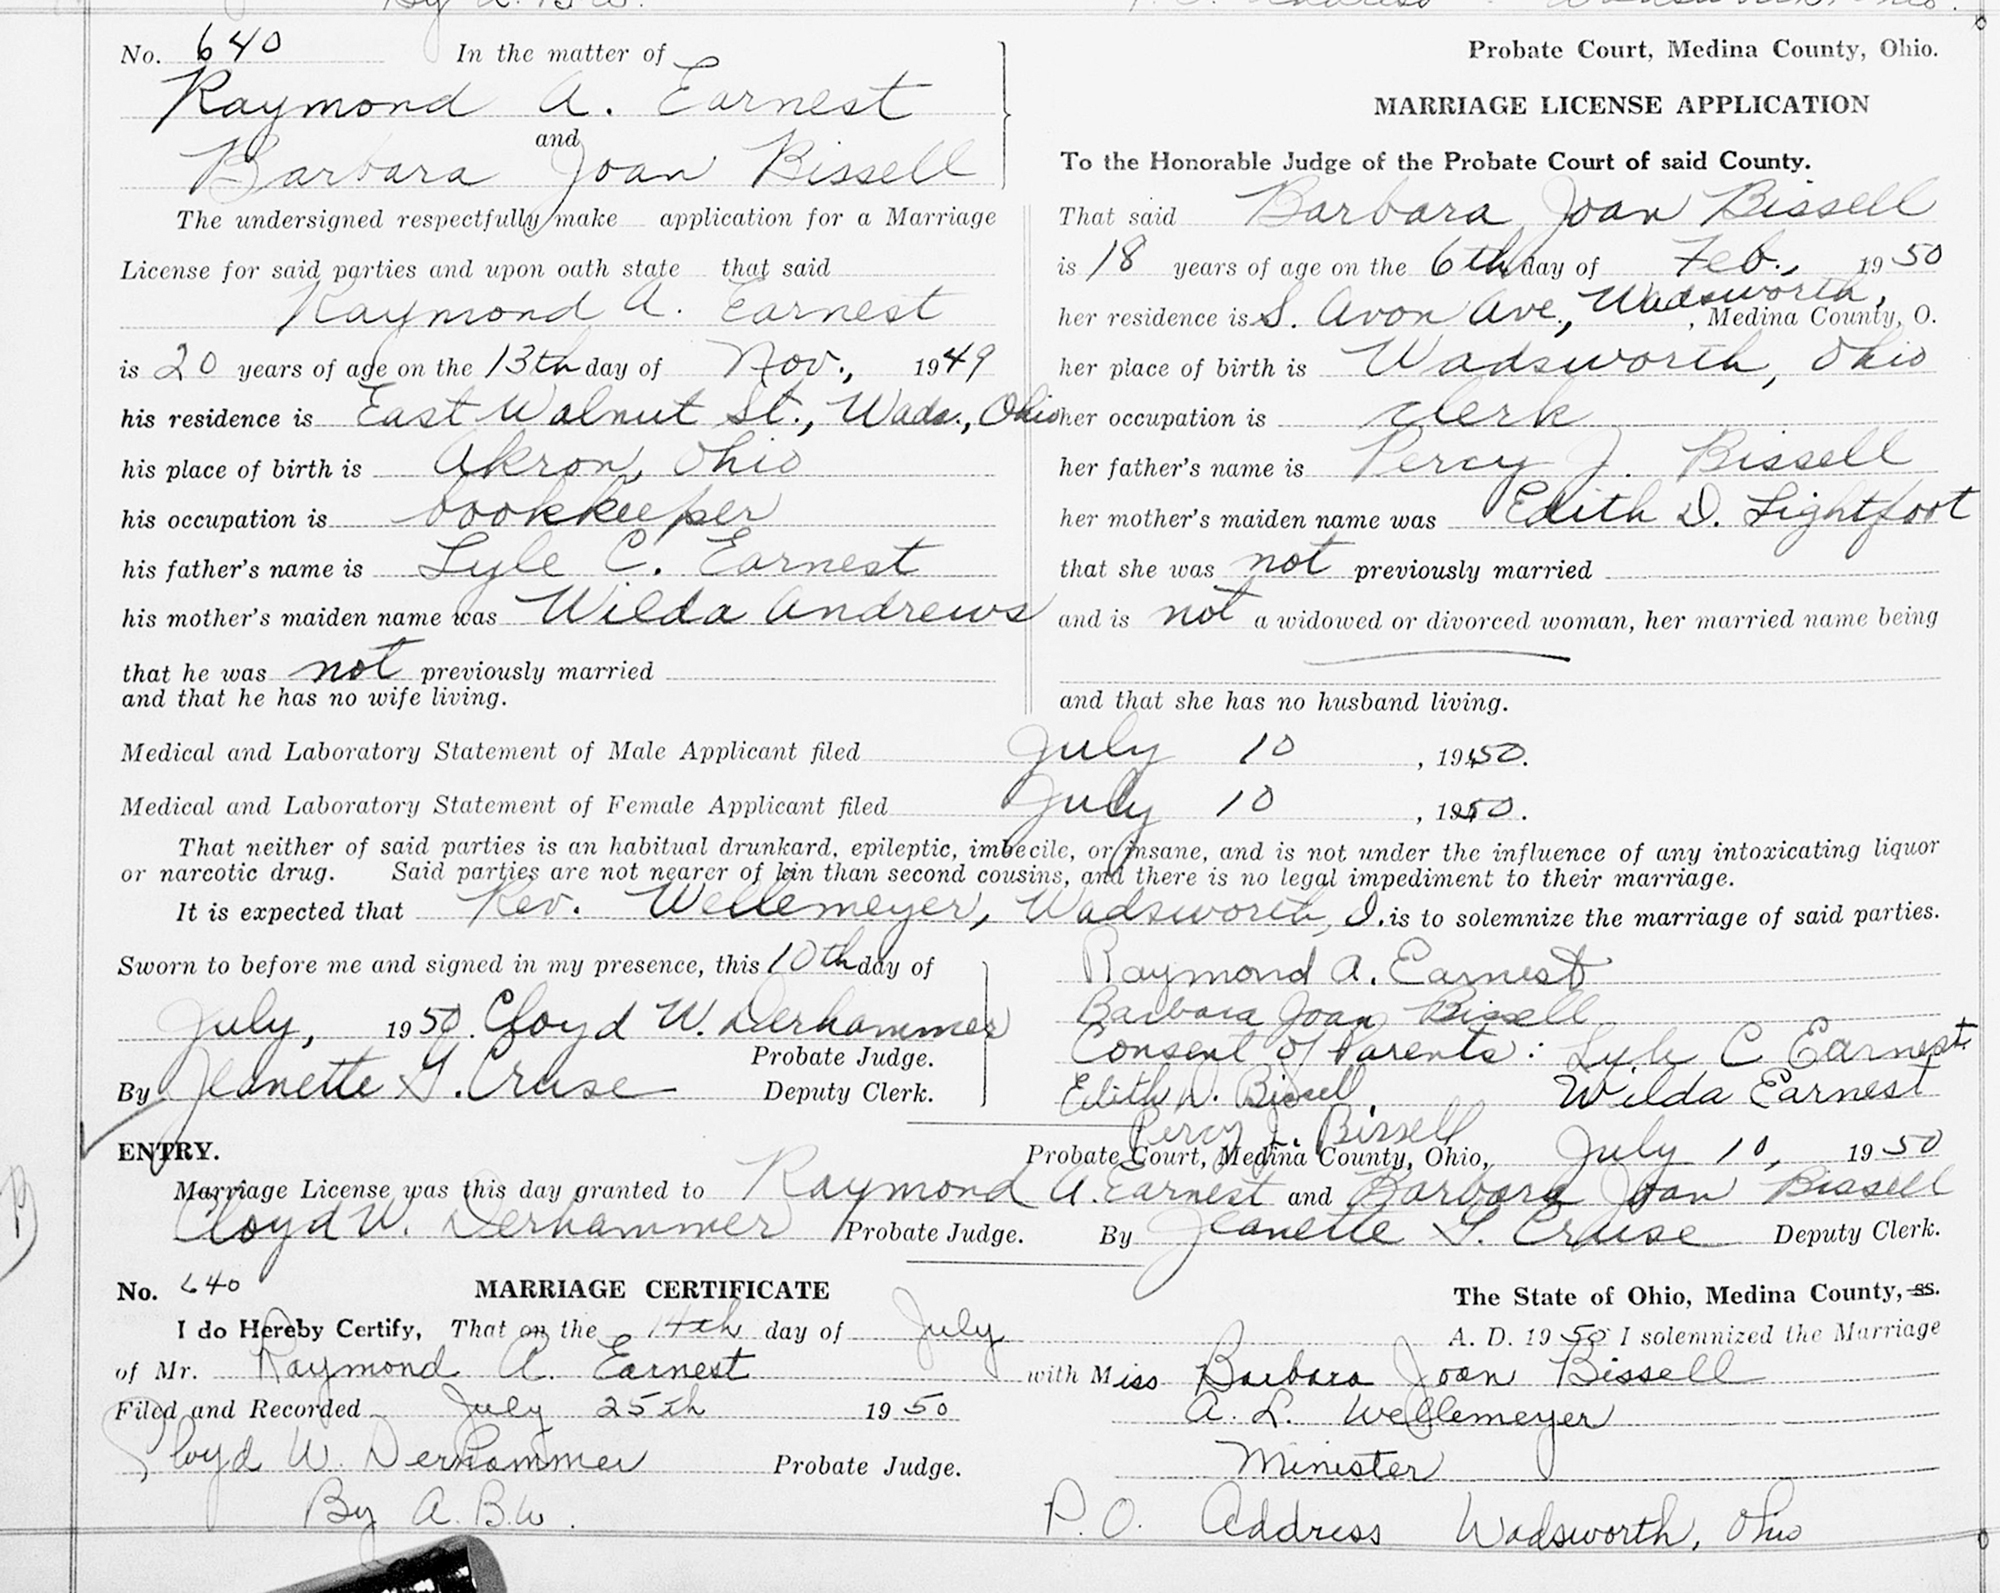 No. 640 In the matter of
Raymond A. Earnest
and
Barbara Joan Bissell
The undersigned respectfully make application for a Marriage
License for said parties and upon oath state that said
Raymond A. Earnest
is 20 years of age on the 13th day of Nov., 1949
his residence is East Walnut St., Wads., Ohio
his place of birth is Akron, Ohio
his occupation is bookkeeper
his father's name is Lyle C. Earnest
his mother's maiden name was Wilda Andrews
that he was not previously married
and that he has no wife living.
Probate Court, Medina County, Ohio.
MARRIAGE LICENSE APPLICATION
To the Honorable Judge of the Probate Court of said County.
That said Barbara Joan Bissell
is 18 years of age on the 6th day of Feb., 1950
her residence is S. Avon Ave., Wadsworth, , Medina County, O.
her place of birth is Wadsworth, Ohio
her occupation is clerk
her father's name is Percy J. Bissell
her mother's maiden name was Edith D. Lightfoot
that she was not previously married
and is not a widowed or divorced woman, her married name being
and that she has no husband living.
Medical and Laboratory Statement of Male Applicant filed July 10, 1950.
Medical and Laboratory Statement of Female Applicant filed July 10, 1950.
That neither of said parties is an habitual drunkard, epileptic, imbecile, or insane, and is not under the influence of any intoxicating liquor
or narcotic drug. Said parties are not nearer of kin than second cousins, and there is no legal impediment to their marriage.
It is expected that Rev. Wellemeyer, Wadsworth, O. is to solemnize the marriage of said parties.
Sworn to before me and signed in my presence, this 10th day of
July, 1950. Cloyd W. Derhammer
Probate Judge.
By Jeanette G. Cruse Deputy Clerk.
Raymond A. Earnest
Barbara Joan Bissell
Consent of Parents: Lyle C Earnest
Edith D. Bissell, Wilda Earnest
Percy J. Bissell
ENTRY. Probate Court, Medina County, Ohio, July 10, 1950
Marriage License was this day granted to Raymond A. Earnest and Barbara Joan Bissell
Cloyd W. Derhammer Probate Judge. By Jeanette G. Cruse Deputy Clerk.
No. 640 MARRIAGE CERTIFICATE The State of Ohio, Medina County, ss.
I do Hereby Certify, That on the 14th day of July A. D. 1950 I solemnized the Marriage
of Mr. Raymond A. Earnest with Miss Barbara Joan Bissell
Filed and Recorded July 25th 1950 A. L. Wellemeyer
Cloyd W. Derhammer Probate Judge. Minister
By A. B. W. P. O. Address Wadsworth, Ohio